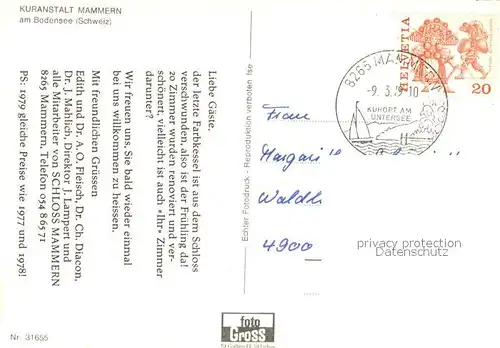 KURANSTALT MAMMERN
am Bodensee (Schweiz)
Liebe Gäste,
der letzte Farbkessel ist aus dem Schloss
verschwunden, also ist der Frühling da!
20 Zimmer wurden renoviert und ver-
schönert, vielleicht ist auch «Ihr» Zimmer
darunter?
Wir freuen uns, Sie bald wieder einmal
bei uns willkommen zu heissen.
Mit freundlichen Grüssen
Edith und Dr. A.O. Fleisch, Dr. Ch. Diacon,
Dr. J. Mahlich, Direktor J. Lampert und
alle Mitarbeiter von SCHLOSS MAMMERN
8265 Mammern, Telefon 054 86571
PS: 1979 gleiche Preise wie 1977 und 1978!
Nr. 31655
Echter Fotodruck - Reproduktion verboten
foto
Gross
8265 MAMMERN
-9. 3.79-10
KURORT AM
UNTERSEE
HELVETIA
20
Frau
Waldli
4900
privacy protection
AnsichtskartenVersand